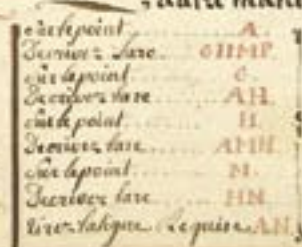 sur le point ........ A.
Decrivez Larc ... GHMP.
sur le point ........ G.
Decrivez larc ...... AH.
sur le point ........ H.
Decrivez larc ..... AMH.
sur le point ....... M.
Decrivez larc ...... HN.
tirez la ligne Requise AN